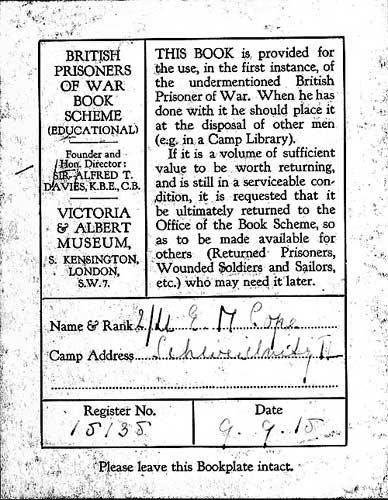 BRITISH
PRISONERS
OF WAR
BOOK
SCHEME
(EDUCATIONAL)
Founder and
Hon. Director:
SIR ALFRED T.
DAVIES, K.B.E., C.B.
VICTORIA
& ALBERT
MUSEUM,
S. KENSINGTON,
LONDON,
S.W.7.
THIS BOOK is provided for
the use, in the first instance, of
the undermentioned British
Prisoner of War. When he has
done with it he should place it
at the disposal of other men
(e.g. in a Camp Library).
If it is a volume of sufficient
value to be worth returning,
and is still in a serviceable con-
dition, it is requested that it
be ultimately returned to the
Office of the Book Scheme, so
as to be made available for
others (Returned Prisoners,
Wounded Soldiers and Sailors,
etc.) who may need it later.
Name & Rank 2/Lt E M Cope
Camp Address
Register No.
15135
Date
9.9.18
Please leave this Bookplate intact.